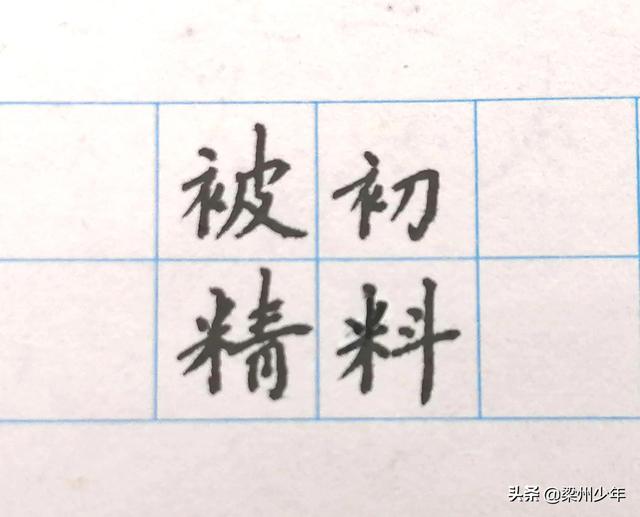 被初
精料
头条 @梁州少年